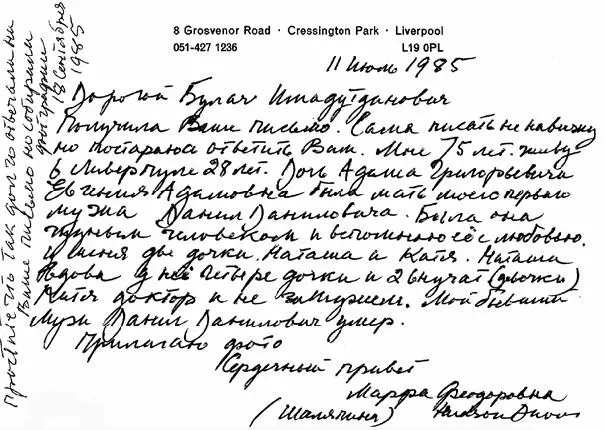 8 Grosvenor Road · Cressington Park · Liverpool
051-427 1236 L19 0PL
11 Июль 1985
Дорогой Булач Имадутданович
Получила Ваше письмо. Сама писать не навижу
но постараюсь ответить Вам. Мне 75 лет. живу
в Ливерпуле 28 лет. Дочь Адама Григорьевича
Евгения Адамовна была мать моего первого
мужа Данил Даниловича. Была она
человеком и вспоминаю её с любовью.
У меня две дочки. Наташа и Катя. Наташа
вдова у ней четыре дочки и 2 внучат (девочки)
Катя доктор и не замужем. Мой бывший
Муж Данил Данилович умер.
Прилагаю фото
Сердечный привет
Марфа Феодоровна
(Шаляпина) Hudson
Простите что так долго отвечала на
Ваше письмо но собирала
фотографии
18 Сентября
1985